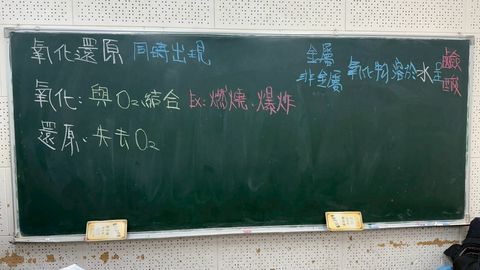 氧化還原 同時出現
氧化:與O₂結合 Ex:燃燒、爆炸
還原:失去O₂
金屬 氧化物溶於水呈鹼
非金屬 酸